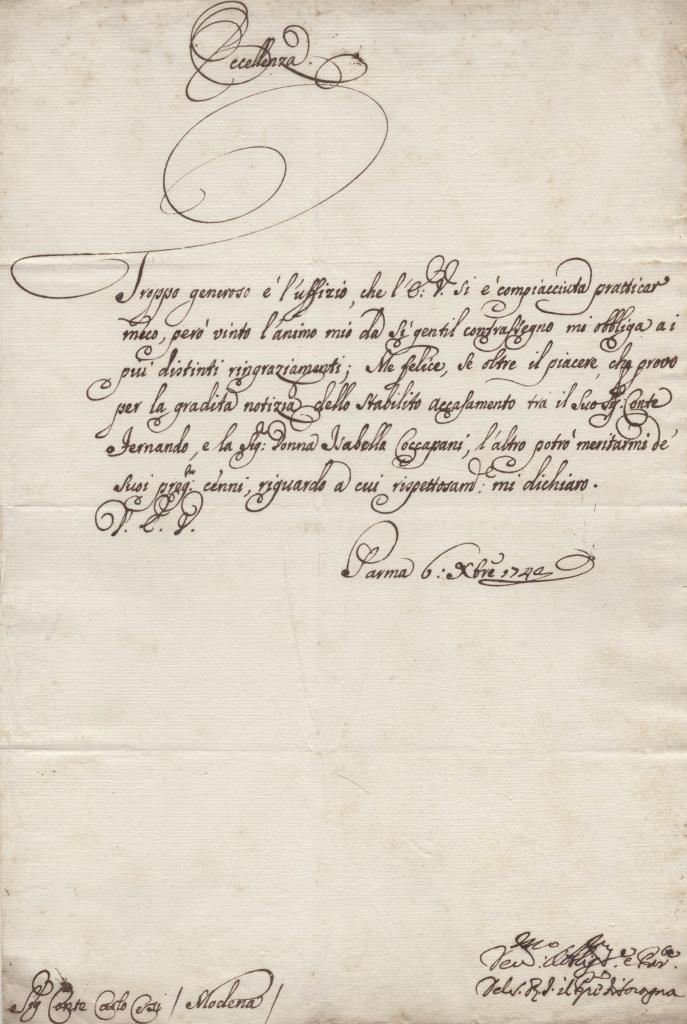 Eccellenza.
Troppo generoso è l'uffizio, che l'E: V. si è compiacciuta pratticar
meco, però vinto l'animo mio da sì gentil contrassegno mi obbliga ai
più distinti ringraziamenti; Me felice, se oltre il piacere, che provo
per la gradita notizia dello stabilito accasamento trà il suo Sig: Conte
Fernando, e la Sig:ra Donna Isabella Coccapani, l'altro potrò meritarmi de
suoi preg:mi cenni, riguardo a cui rispettosam:te mi dichiaro.
V. E. V.
Parma 6: Xbre 1742
Sig Conte Carlo Cesi / Modena /
il di Soragna